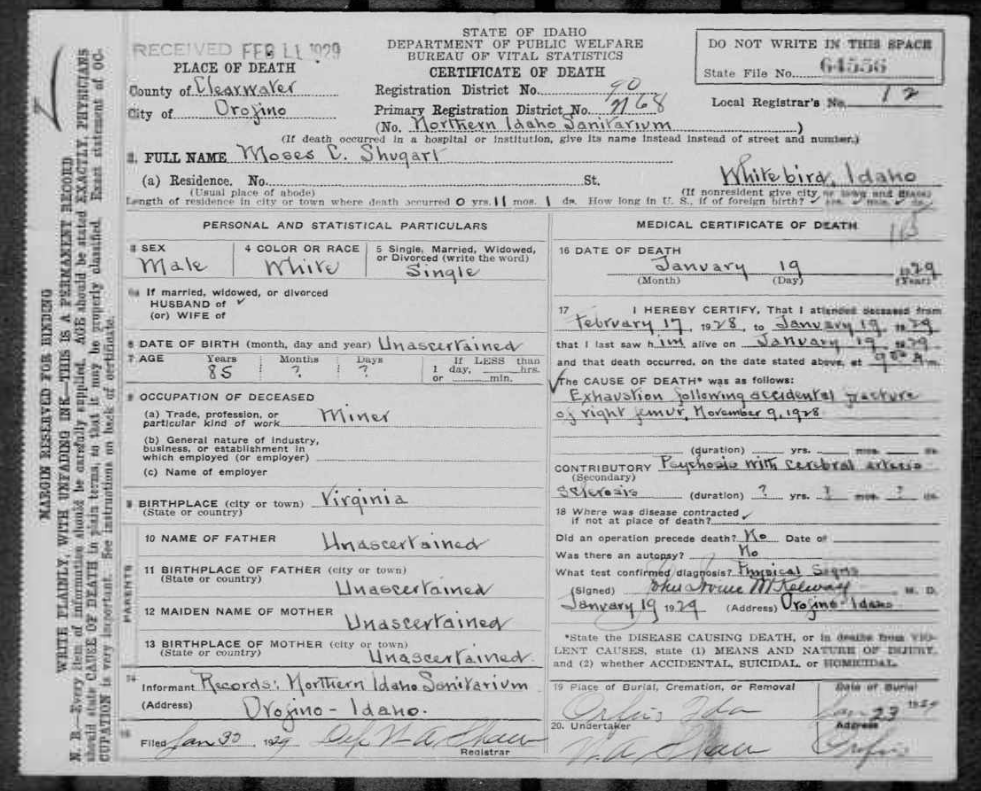 STATE OF IDAHO
DEPARTMENT OF PUBLIC WELFARE
BUREAU OF VITAL STATISTICS
CERTIFICATE OF DEATH
RECEIVED FEB 11 1929
PLACE OF DEATH
County of Clearwater
City of Orofino
Registration District No. 90
Primary Registration District No. 2168
(No. Northern Idaho Sanitarium )
DO NOT WRITE IN THIS SPACE
State File No. 64556
Local Registrar's No. 12
(If death occurred in a hospital or institution, give its name instead instead of street and number.)
2. FULL NAME Moses C. Shugart
(a) Residence. No. St. Whitebird, Idaho
(Usual place of abode) (If nonresident give city or town and State)
Length of residence in city or town where death occurred 0 yrs. 11 mos. 1 ds. How long in U. S., if of foreign birth? ✓ yrs. ✓ mos. ✓ ds.
PERSONAL AND STATISTICAL PARTICULARS
3 SEX
Male
4 COLOR OR RACE
White
5 Single, Married, Widowed,
or Divorced (write the word)
Single
5a If married, widowed, or divorced
HUSBAND of ✓
(or) WIFE of
6 DATE OF BIRTH (month, day and year) Unascertained
7 AGE Years Months Days If LESS than
85 ? ? 1 day, hrs.
or min.
8 OCCUPATION OF DECEASED
(a) Trade, profession, or
particular kind of work Miner
(b) General nature of industry,
business, or establishment in
which employed (or employer)
(c) Name of employer
9 BIRTHPLACE (city or town) Virginia
(State or country)
PARENTS
10 NAME OF FATHER
Unascertained
11 BIRTHPLACE OF FATHER (city or town)
(State or country)
Unascertained
12 MAIDEN NAME OF MOTHER
Unascertained
13 BIRTHPLACE OF MOTHER (city or town)
(State or country) Unascertained
14
Informant Records: Northern Idaho Sanitarium
(Address) Orofino - Idaho.
15
Filed Jan 30 1929 Dep W A Shaw
Registrar
MEDICAL CERTIFICATE OF DEATH
16 DATE OF DEATH
January 19 1929
(Month) (Day) (Year)
17 I HEREBY CERTIFY, That I attended deceased from
February 17, 1928, to January 19, 1929
that I last saw him alive on January 19, 1929
and that death occurred, on the date stated above, at A m.
✓The CAUSE OF DEATH* was as follows:
Exhaustion following accidental fracture
of right femur, November 9, 1928
(duration) yrs. mos. ds.
CONTRIBUTORY Psychosis with cerebral arterio
(Secondary)
Sclerosis (duration) ? yrs. ? mos. ? ds.
18 Where was disease contracted
if not at place of death? ✓
Did an operation precede death? No Date of
Was there an autopsy? No
What test confirmed diagnosis? Physical Signs
(Signed) John McKelway M. D.
January 19 1929 (Address) Orofino-Idaho
*State the DISEASE CAUSING DEATH, or in deaths from VIO-
LENT CAUSES, state (1) MEANS AND NATURE OF INJURY,
and (2) whether ACCIDENTAL, SUICIDAL, or HOMICIDAL.
19 Place of Burial, Cremation, or Removal Date of Burial
Orofino Ida Jan 23 1929
20. Undertaker Address
W. A Shaw Orofino
MARGIN RESERVED FOR BINDING
WRITE PLAINLY, WITH UNFADING INK—THIS IS A PERMANENT RECORD
N. B.—Every item of information should be carefully supplied. AGE should be stated EXACTLY. PHYSICIANS
should state CAUSE OF DEATH in plain terms, so that it may be properly classified. Exact statement of OC-
CUPATION is very important. See instructions on back of certificate.